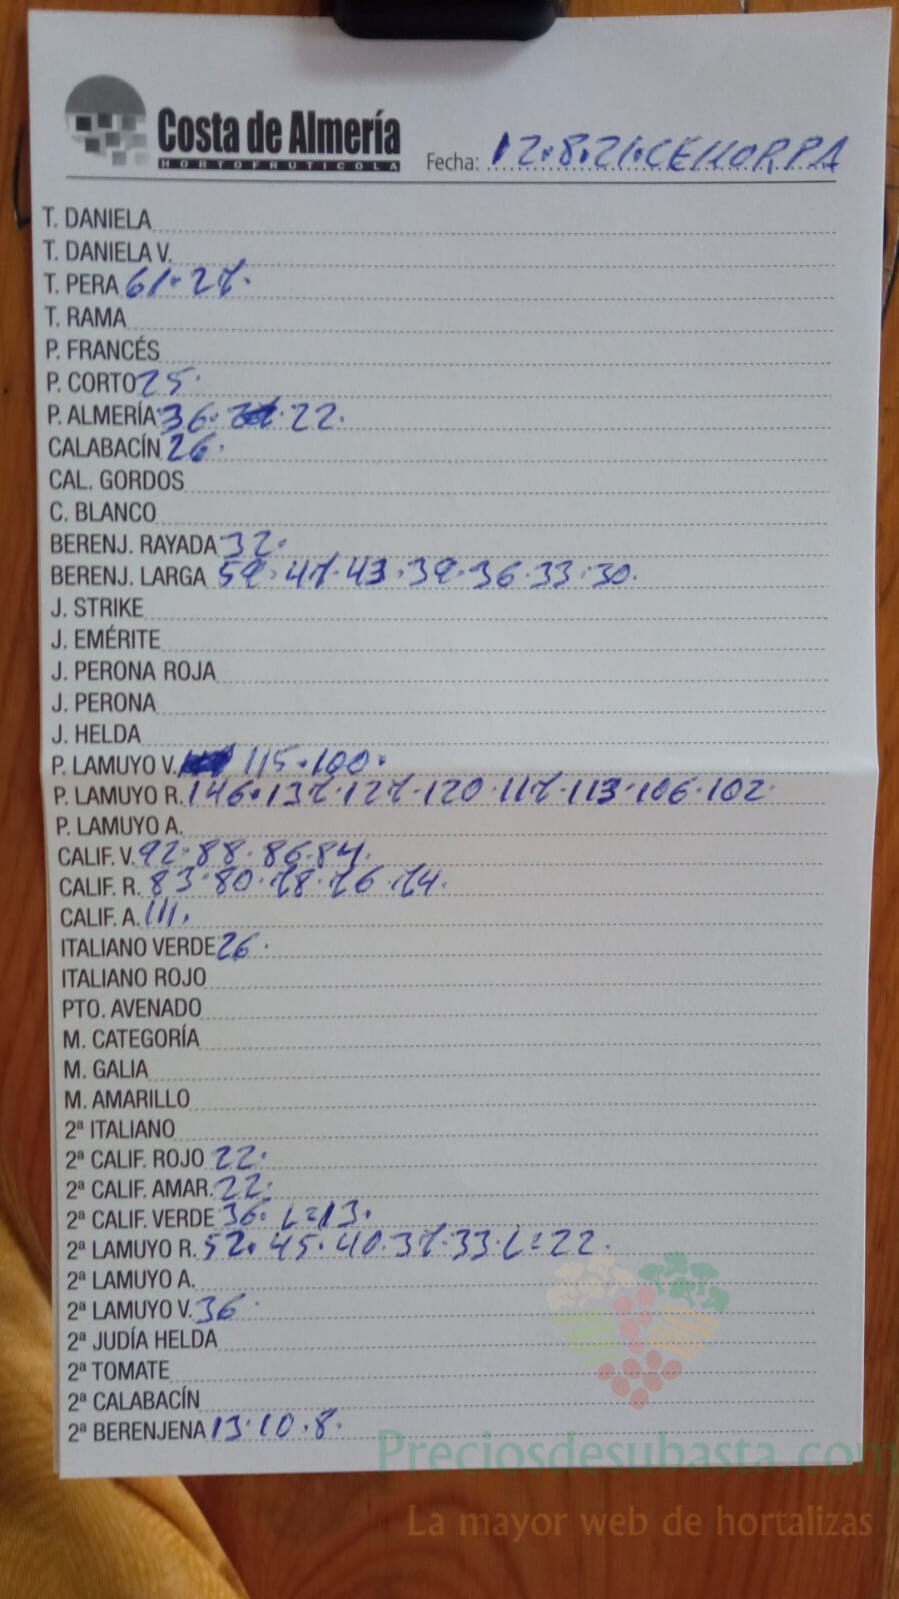 Costa de Almería
HORTOFRUTICOLA
Fecha: 12.8.21.CEHORPA
T. DANIELA
T. DANIELA V.
T. PERA 61. 27.
T. RAMA
P. FRANCÉS
P. CORTO 25.
P. ALMERÍA 36. 22.
CALABACÍN 26.
CAL. GORDOS
C. BLANCO
BERENJ. RAYADA 32.
BERENJ. LARGA 59. 47. 43. 39. 36. 33. 30.
J. STRIKE
J. EMÉRITE
J. PERONA ROJA
J. PERONA
J. HELDA
P. LAMUYO V. 115. 100.
P. LAMUYO R. 146. 137. 127. 120. 117. 113. 106. 102.
P. LAMUYO A.
CALIF. V. 92. 88. 86. 84.
CALIF. R. 83. 80. 78. 76. 74.
CALIF. A. 111.
ITALIANO VERDE 26.
ITALIANO ROJO
PTO. AVENADO
M. CATEGORÍA
M. GALIA
M. AMARILLO
2ª ITALIANO
2ª CALIF. ROJO 22.
2ª CALIF. AMAR. 22.
2ª CALIF. VERDE 36. L=13.
2ª LAMUYO R. 52. 45. 40. 37. 33. L=22.
2ª LAMUYO A.
2ª LAMUYO V. 36.
2ª JUDÍA HELDA
2ª TOMATE
2ª CALABACÍN
2ª BERENJENA 13. 10. 8.
Preciosdesubasta.com
La mayor web de hortalizas